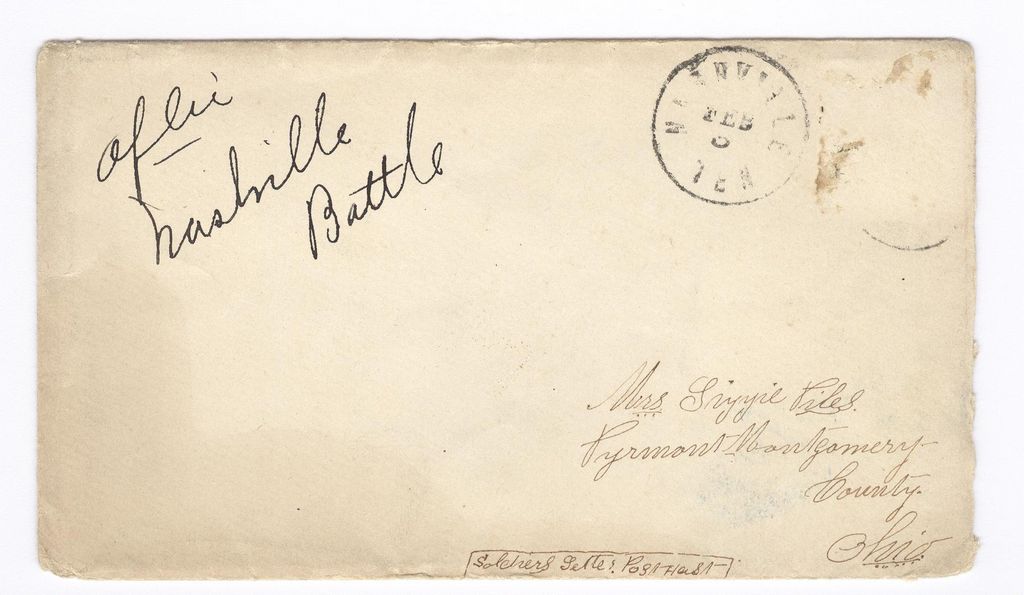 after
Nashville
Battle
NASHVILLE
FEB
6
TEN
Mrs Lizzie Piles.
Pyrmont Montgomery
County.
Ohio.
Soldiers Letter. Post Hast